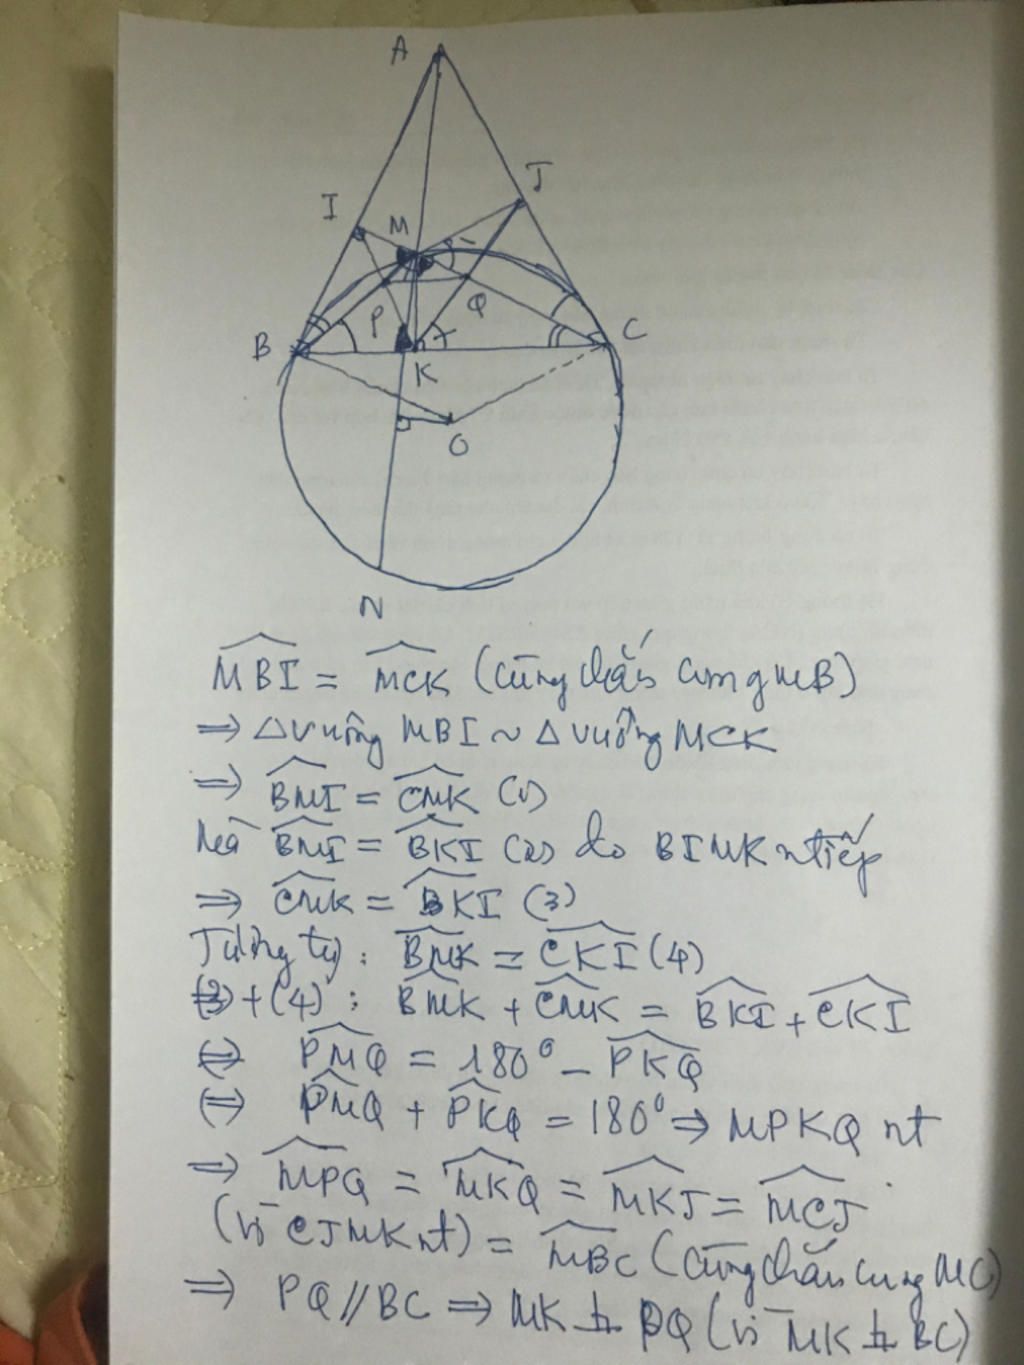 A
J
I
M
Q
P
B
C
K
O
N
MBI = MCK (cùng chắn cung MB)
⇒ Δ vuông MBI ~ Δ vuông MCK
⇒ BMI = CMK (1)
Mà BMI = BKI (2) do BIMK ntiếp
⇒ CMK = BKI (3)
Tương tự : BMK = CKI (4)
(3) + (4) : BMK + CMK = BKI + CKI
⇔ PMQ = 180° - PKQ
⇔ PMQ + PKQ = 180° ⇒ MPKQ nt
⇒ MPQ = MKQ = MKJ = MCJ
(vì CJMK nt) = MBC (cùng chắn cung MC)
⇒ PQ // BC ⇒ MK ⊥ PQ (vì MK ⊥ BC)